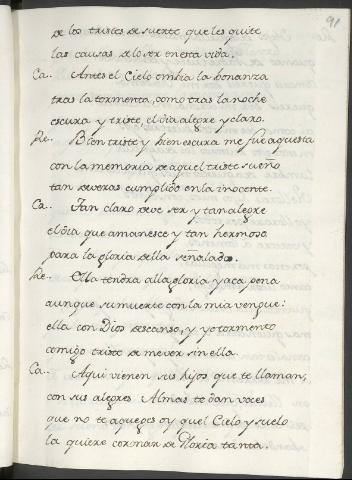 91
de los tristes de suerte que les quite
las causas de lo ser enesta vida.
Ca.. Antes el Cielo embia la bonanza
tras la tormenta, como tras la noche
escura y triste, el dia alegre y claro.
Re.. Bien triste y bien escura me fue aquesta
con la memoria de aquel triste sueño,
tan deveras cumplido en la inocente.
Ca.. Tan claro deve ser y tan alegre
el dia que amanesce y tan hermoso
para la gloria della señalado.
Re.. Ella tendra alla gloria y aca pena
aunque su muerte con la mia vengue:
ella con Dios descanso, y yo tormento
comigo triste de me ver sin ella.
Ca.. Aqui vienen sus hijos que te llaman,
con sus alegres Almas te dan voces
que no te aquexes oy quel Cielo y suelo
la quiere coronar de Gloria tanta.